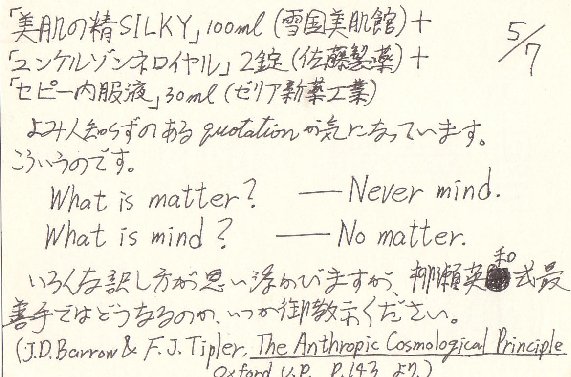 「美肌の精SILKY」100ml(雪国美肌館)+
5/7
「ユンケルゾンネロイヤル」2錠(佐藤製薬)+
「セピー内服液」30ml(ゼリア新薬工業)
よみ人知らずのある quotation が気になっています。
こういうのです。
What is matter? ―Never mind.
What is mind? ―No matter.
いろんな訳し方が思い浮かびますが、柳瀬英和式最
善手ではどうなるのか、いつか御教示ください。
(J.D. Barrow & F.J. Tipler, The Anthropic Cosmological Principle
Oxford U.P. P.143 より。)